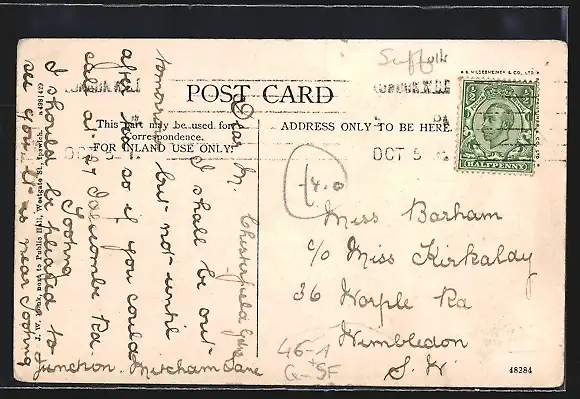 Suffolk
© HILDESHEIMER & CO., LTD.
LONDON. N.W.
POST CARD
This part may be used for
Correspondence.
FOR INLAND USE ONLY.
ADDRESS ONLY TO BE HERE.
OCT 5
OCT 5
HALFPENNY
4.0
Miss Barham
c/o Miss Kirkaldy
36 Worple Rd
Wimbledon
S.W.
46-1
G-SF
48284
Chesterfield
Dear M.
I shall be out
tomorrow but not until
after tea so if you could
call at 27 Idlecombe Rd.
Tooting
I should be pleased to
see you. It is near Tooting
Junction. Mitcham Lane
J. W. next to Public Hall, Westgate St., Ipswich.